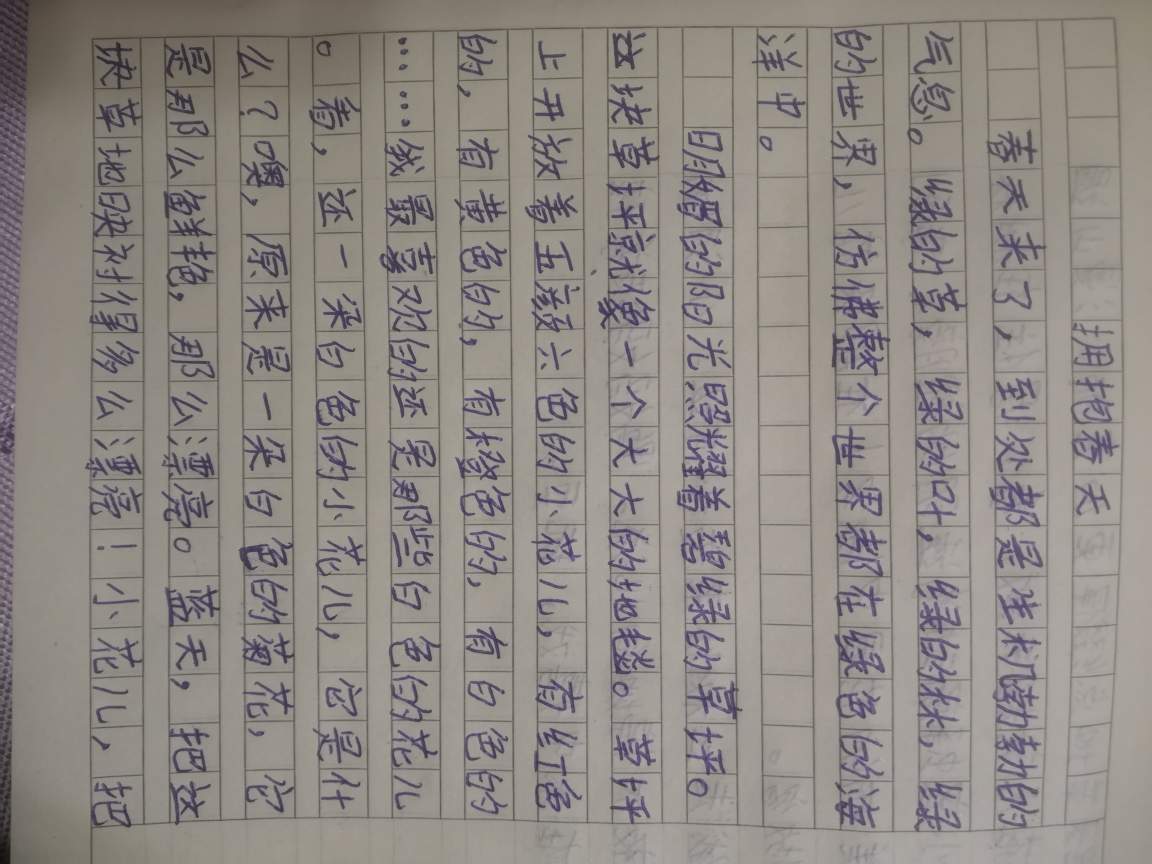 拥抱春天
春天来了，到处都是生机勃勃的
气息。绿的草，绿的叶，绿的林，绿
的世界，仿佛整个世界都在绿色的海
洋中。
明媚的阳光照耀着碧绿的草坪。
这块草坪就像一个大大的地毯。草坪
上开放着五颜六色的小花儿，有红色
的，有黄色的，有橙色的，有白色的
……我最喜欢的还是那些白色的花儿
。看，这一朵白色的小花儿，它是什
么？噢，原来是一朵白色的菊花，它
是那么鲜艳，那么漂亮。蓝天，把这
块草地映衬得多么漂亮！小花儿，把